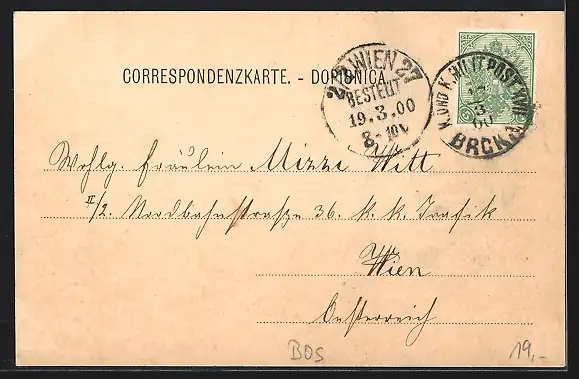 CORRESPONDENZKARTE. - DOPISNICA.
2/2 WIEN 27
BESTELLT
19.3.00
8-10V
K. UND K. MILIT. POST XVIII
17
3
00
BRCKA
5
Wohlg. Fräulein Mizzi Witt
II/2. Nordbahnstraße 36. k. k. Trafik
Wien
Oesterreich
BOS
19,-